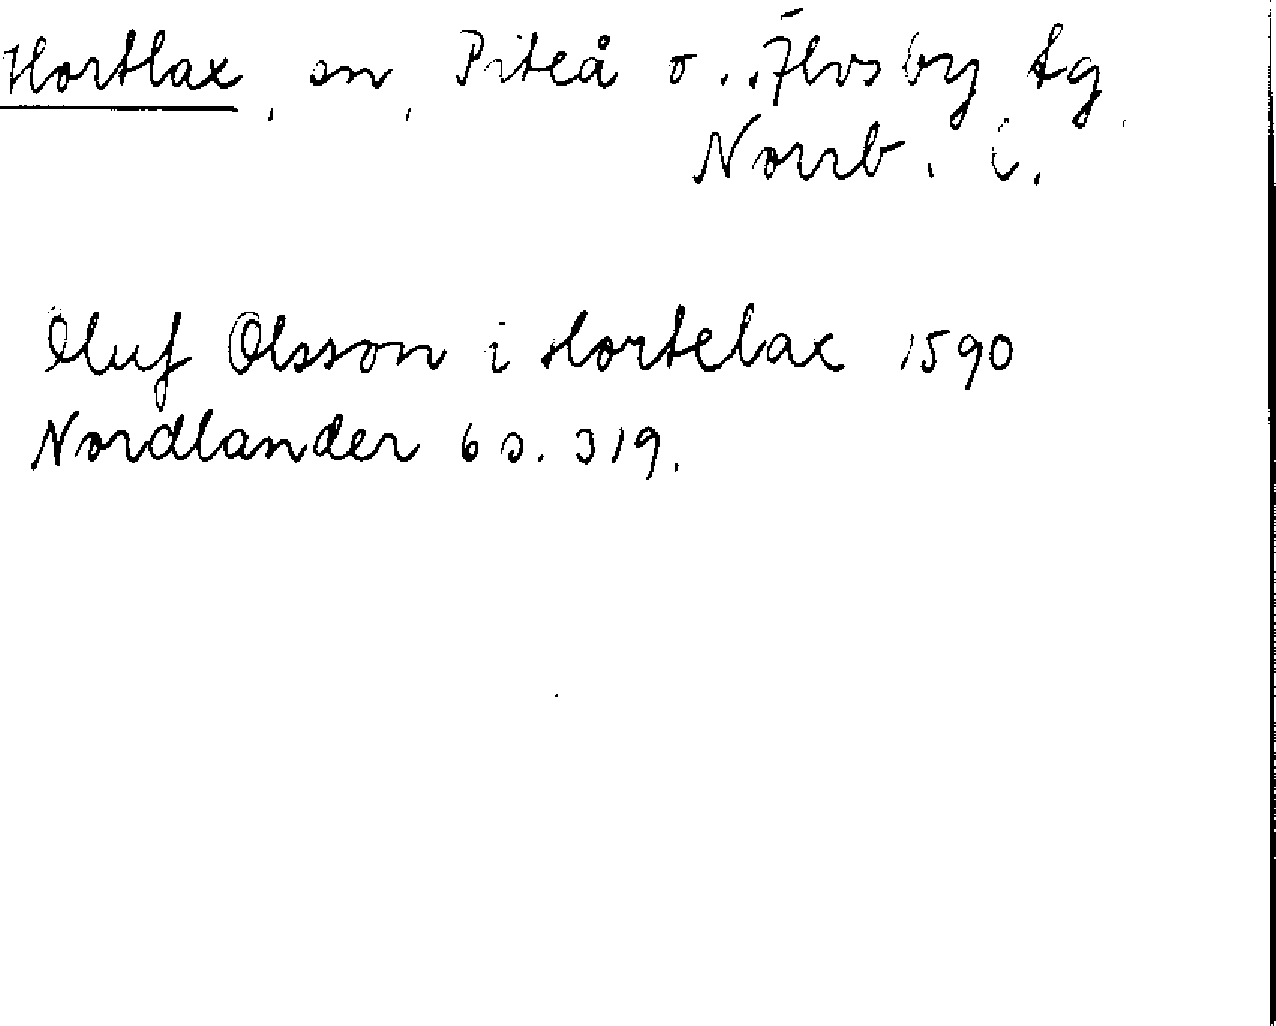 Hortlax, sn, Piteå o. Älvsby tg,
Norrb. l.
Oluf Olsson i Hortelax 1590
Nordlander 6 s. 319.